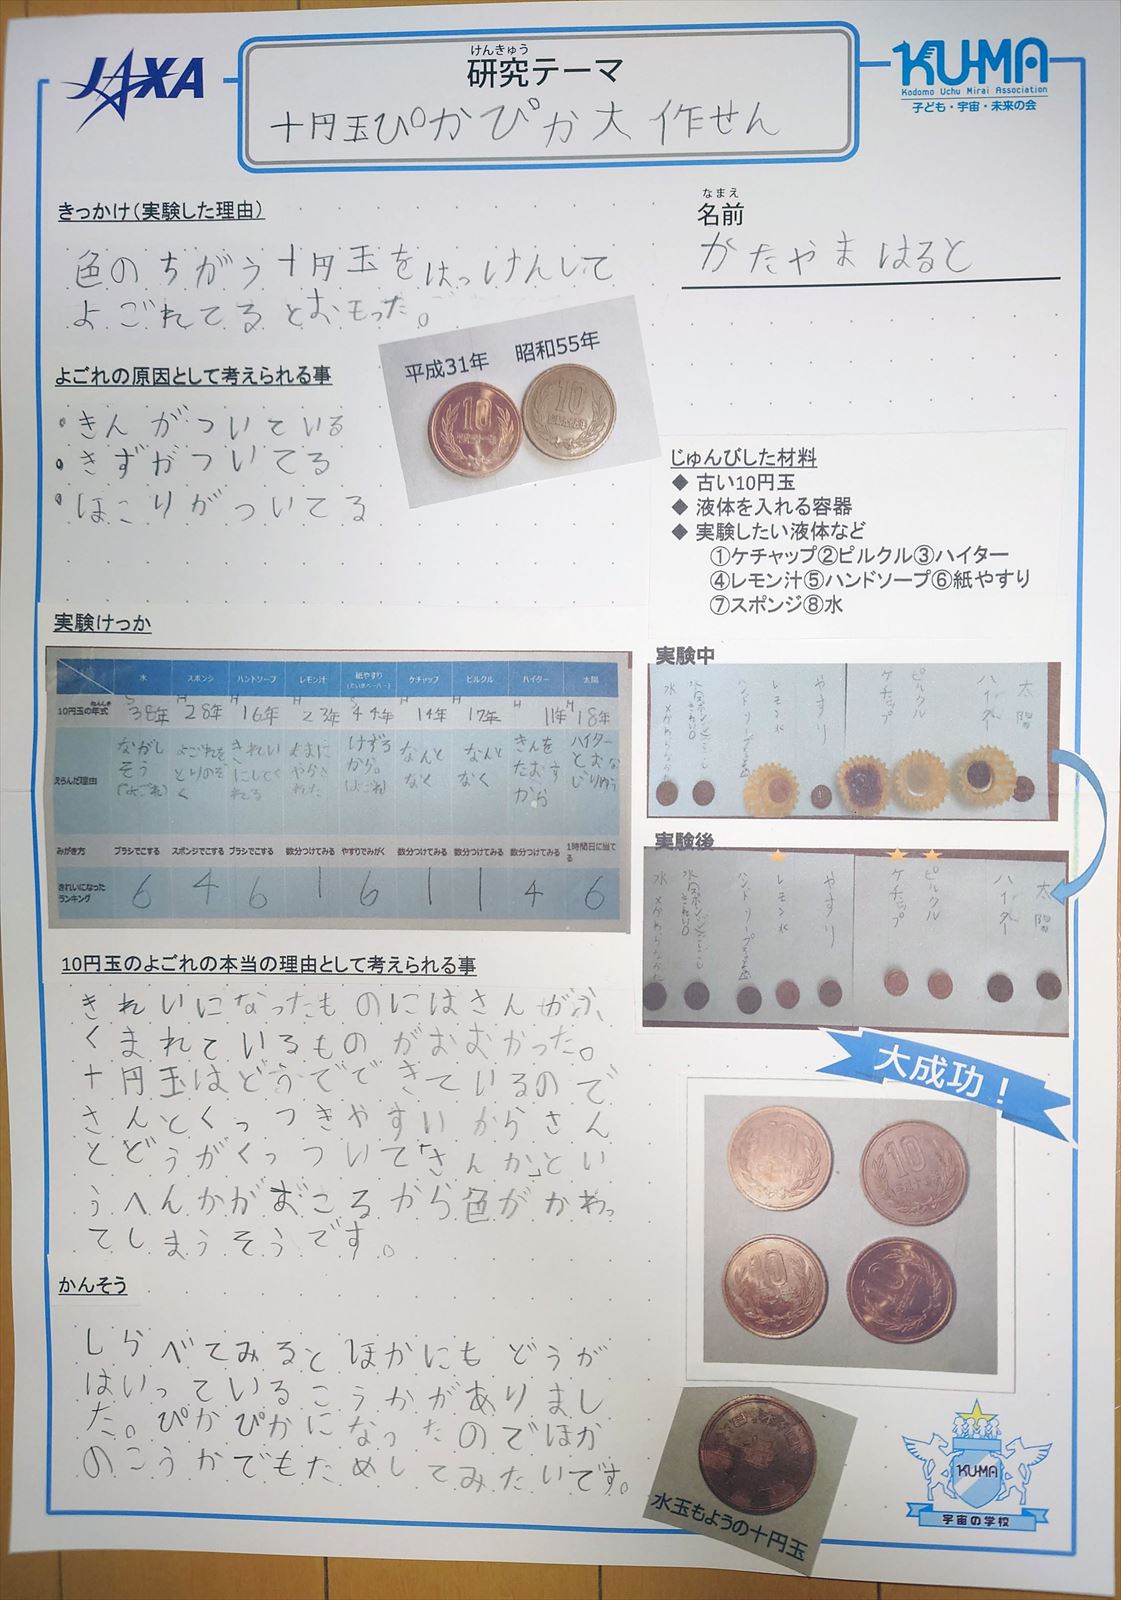 JAXA
けんきゅう
研究テーマ
十円玉ぴかぴか大作せん
KU-MA
Kodomo Uchu Mirai Association
子ども・宇宙・未来の会
きっかけ(実験した理由)
色のちがう十円玉をはっけんして
よごれてるとおもった。
なまえ
名前
かたやまはると
平成31年 昭和55年
よごれの原因として考えられる事
・きんがついている
・きずがついてる
・ほこりがついてる
じゅんびした材料
◆ 古い10円玉
◆ 液体を入れる容器
◆ 実験したい液体など
①ケチャップ②ピルクル③ハイター
④レモン汁⑤ハンドソープ⑥紙やすり
⑦スポンジ⑧水
実験けっか
水 スポンジ ハンドソープ レモン汁 紙やすり ケチャップ ピルクル ハイター 太陽
10円玉の年式 S38年 H28年 H16年 H23年 S44年 H14年 H17年 H11年 H18年
えらんだ理由
ながしそう(よごれ)
よごれをとりのぞく
きれいにしてくれる
けずるから。(よごれ)
なんとなく
なんとなく
きんをたおすから
ハイターとおなじりゆう
みがき方 ブラシでこする スポンジでこする ブラシでこする 数分つけてみる やすりでみがく 数分つけてみる 数分つけてみる 数分つけてみる 1時間日に当てる
きれいになったランキング 6 4 6 1 6 1 1 4 6
実験中
水 ハンドソープ レモン水 やすり ケチャップ ピルクル ハイター 太陽
実験後
水 ハンドソープ レモン水 やすり ケチャップ ピルクル ハイター 太陽
10円玉のよごれの本当の理由として考えられる事
きれいになったものにはさんがふ
くまれているものがおおかった。
十円玉はどうでできているので
さんとくっつきやすいからさん
とどうがくっついて「さんか」とい
うへんかがおこるから色がかわっ
てしまうそうです。
大成功!
かんそう
しらべてみるとほかにもどうが
はいっているこうかがありまし
た。ぴかぴかになったのでほか
のこうかでもためしてみたいです。
水玉もようの十円玉
KU-MA
宇宙の学校